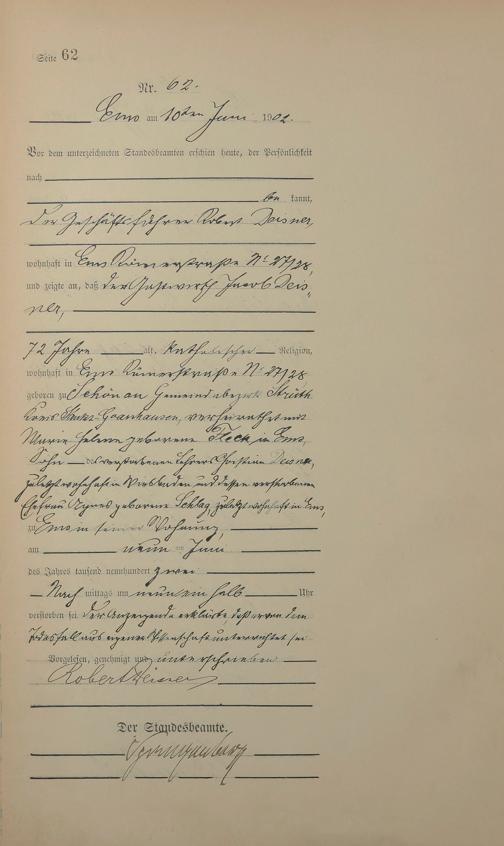 Seite 62
Nr. 62.
Ems am 10ten Juni 1902.
Vor dem unterzeichneten Standesbeamten erschien heute, der Persönlichkeit
nach
be kannt,
der Geschäftsführer Robert Deisner,
wohnhaft in Ems Römerstraße No 27/28,
und zeigte an, daß der Gastwirth Jacob Deis-
ner,
72 Jahre alt, katholischer Religion,
wohnhaft in Ems Römerstraße No 27/28
geboren zu Schönau Gemeindebezirk Strüth
Kreis Sankt-Goarshausen, verheirathet mit
Marie Helene geborene Fleck, in Ems,
Sohn des verstorbenen Lehrers Christian Deisner,
zuletzt wohnhaft in Wiesbaden und dessen verstorbenen
Ehefrau Agnes geborene Schlag, zuletzt wohnhaft in Ems,
zu Ems in seiner Wohnung,
am neun ten Juni
des Jahres tausend neunhundert zwei
Nach mittags um neuneinhalb Uhr
verstorben sei. Der Anzeigende erklärte, daß er von dem
Todesfall aus eigener Wissenschaft unterrichtet sei
Vorgelesen, genehmigt und unterschrieben
Robert Deisner
Der Standesbeamte.